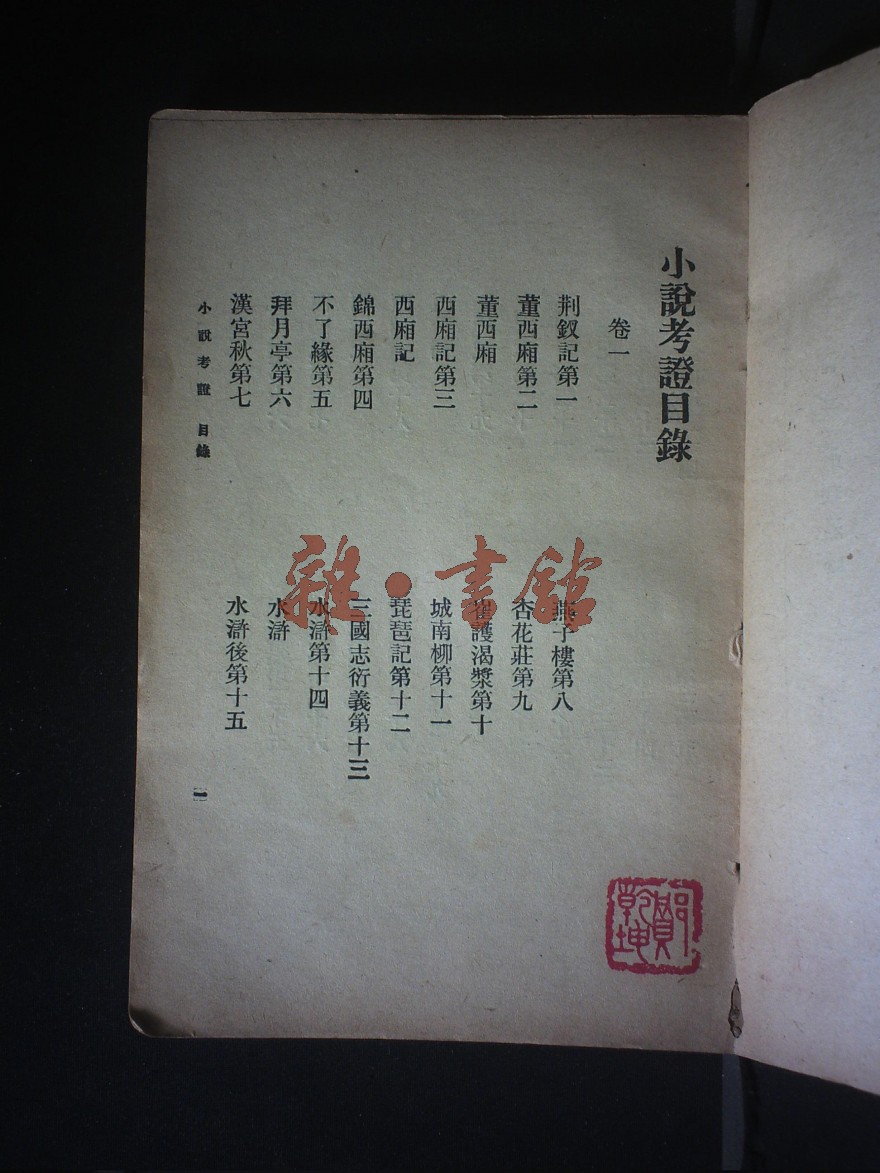 小說考證目錄
卷一
荆釵記第一
董西廂第二
董西廂
西廂記第三
西廂記
錦西廂第四
不了緣第五
拜月亭第六
漢宮秋第七
燕子樓第八
杏花莊第九
崔護渴漿第十
城南柳第十一
琵琶記第十二
三國志衍義第十三
水滸第十四
水滸
水滸後第十五
小說考證 目錄
一
雜·書館
乾坤